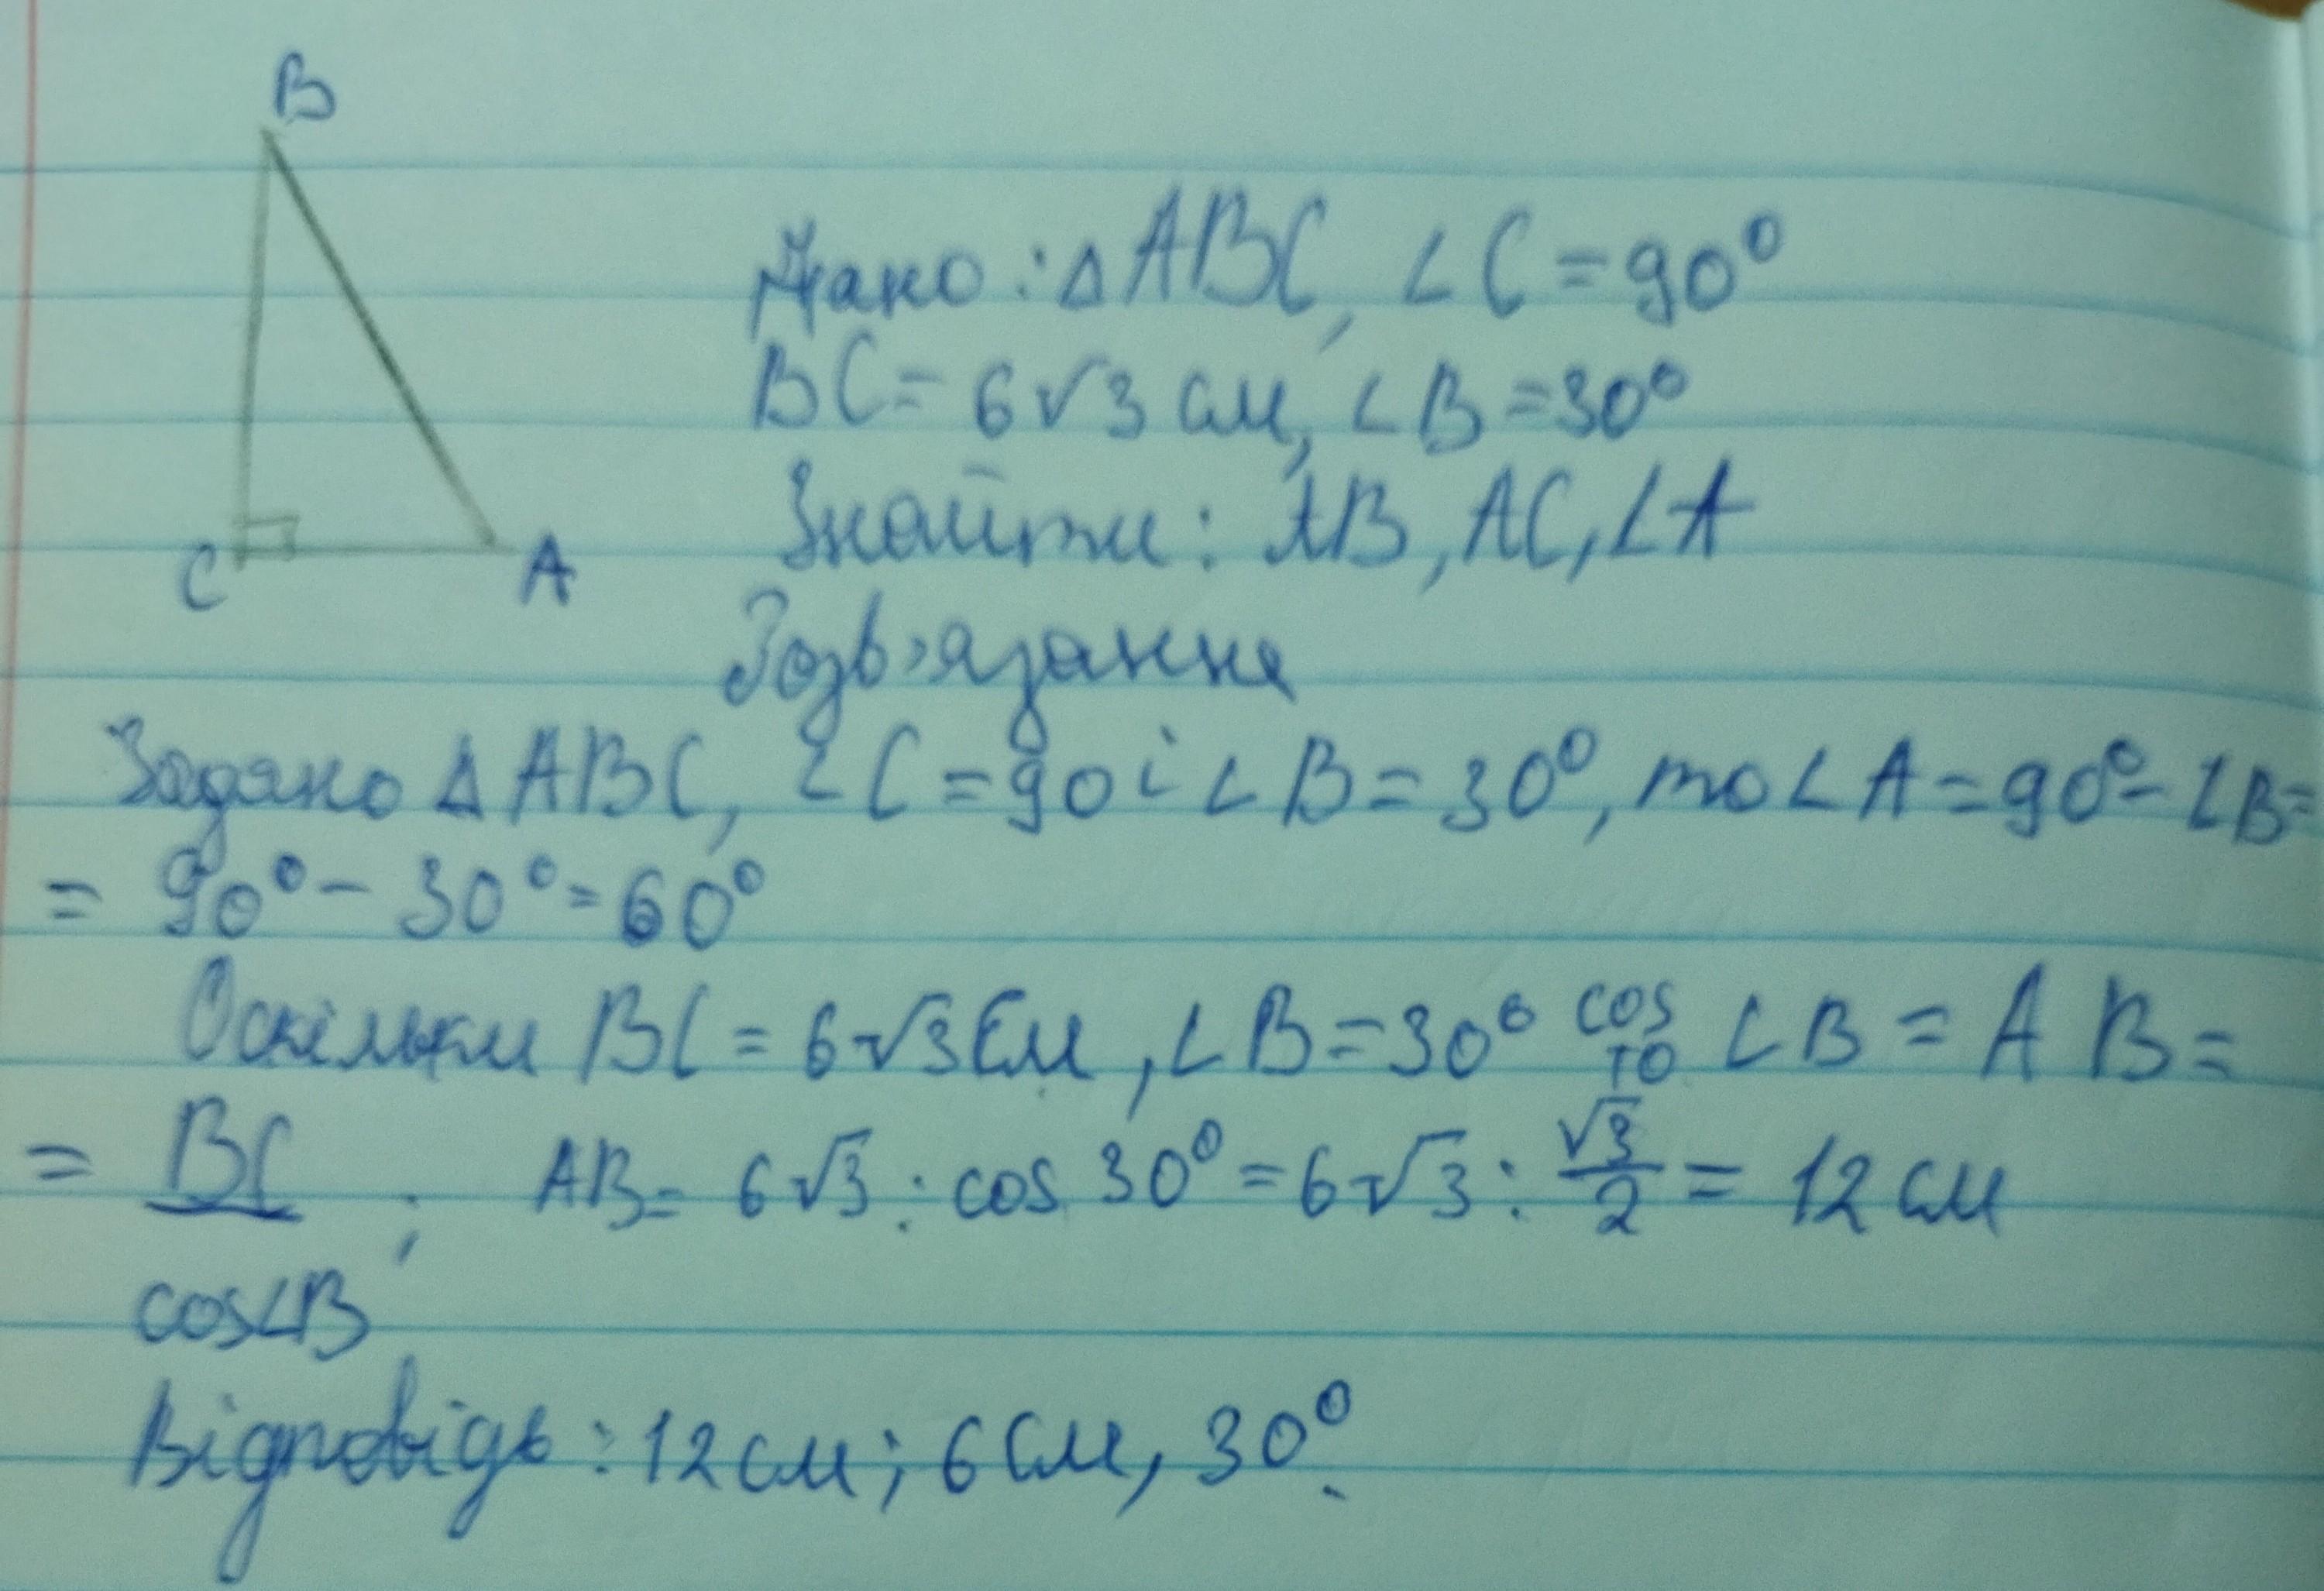 B
C
A
Дано: △ABC, ∠C = 90°
BC = 6√3 см, ∠B = 30°
Знайти: AB, AC, ∠A
Розв'язання
Задано △ABC, ∠C = 90 і ∠B = 30°, то ∠A = 90° - ∠B =
= 90° - 30° = 60°
Оскільки BC = 6√3 см, ∠B = 30° то cos ∠B = AB =
= BC/cos∠B ; AB = 6√3 : cos 30° = 6√3 : √3/2 = 12 см
Відповідь: 12 см; 6 см, 30°.